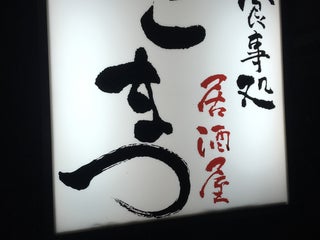 食事処
居酒屋
こまつ